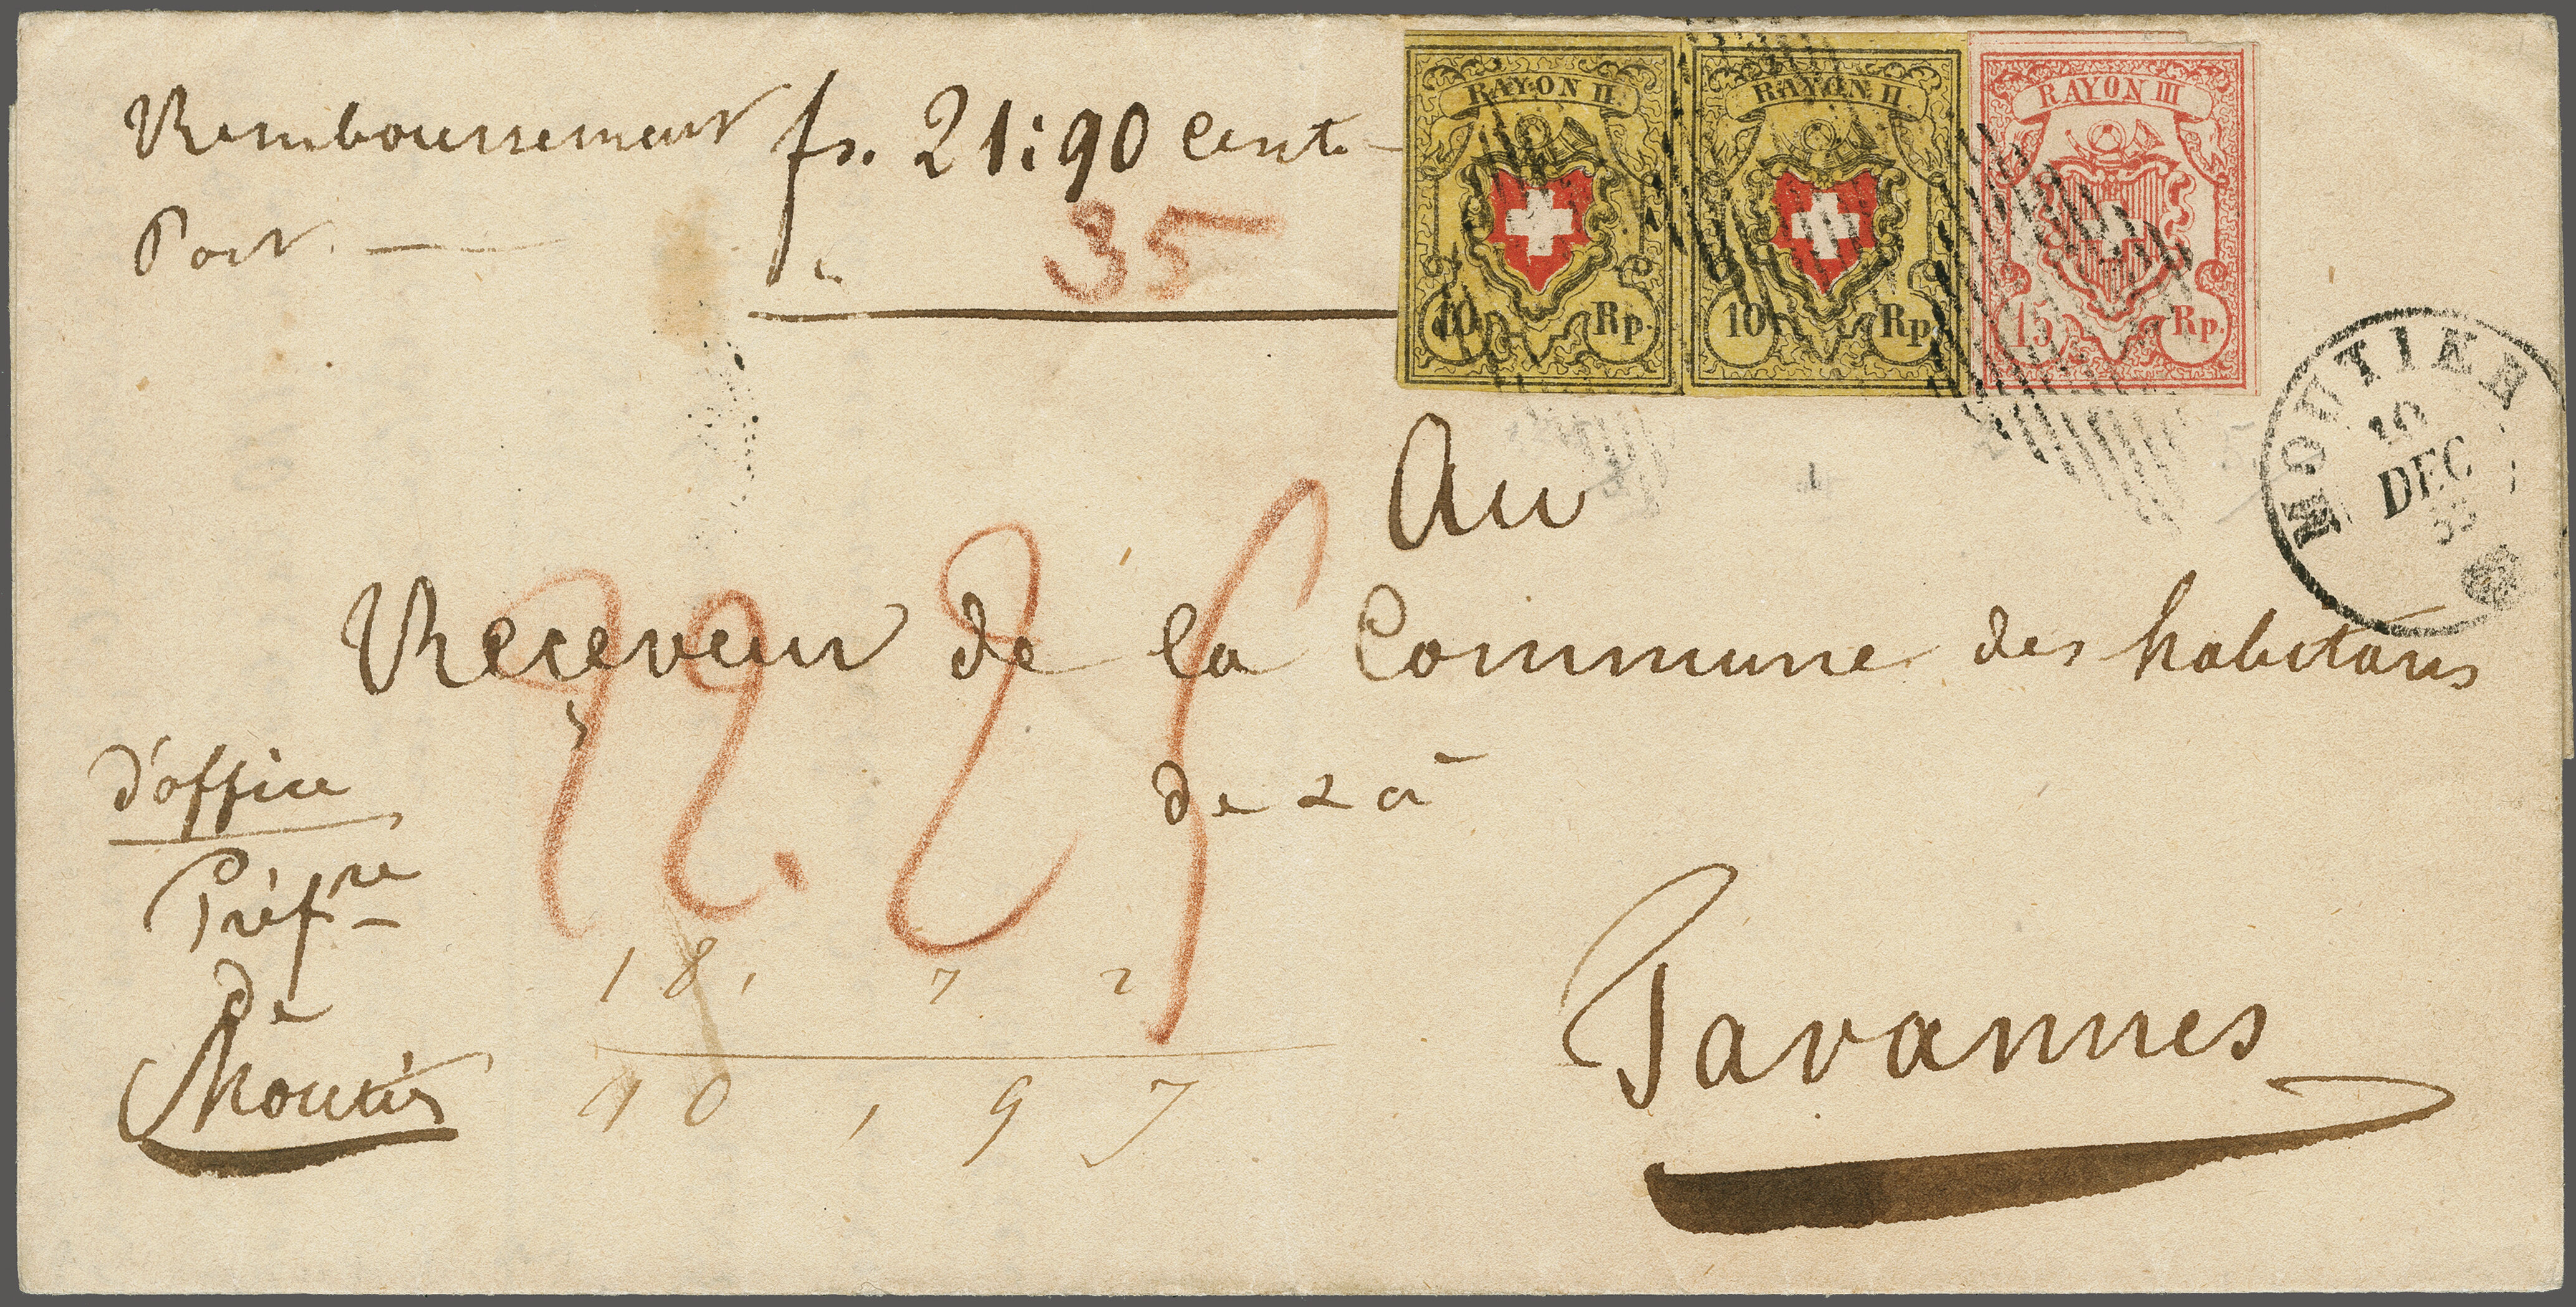 Remboursement fs. 21:90 Cent.
Port. — " 35
RAYON II.
10 Rp.
RAYON II.
10 Rp.
RAYON III
15 Rp.
MOUTIER
10
DEC
53
Au
Receveur de la Commune des habitans
de & à
Tavannes
22.25
d'office
Préf.re
de
Moutier
18, 7 2
10, 97